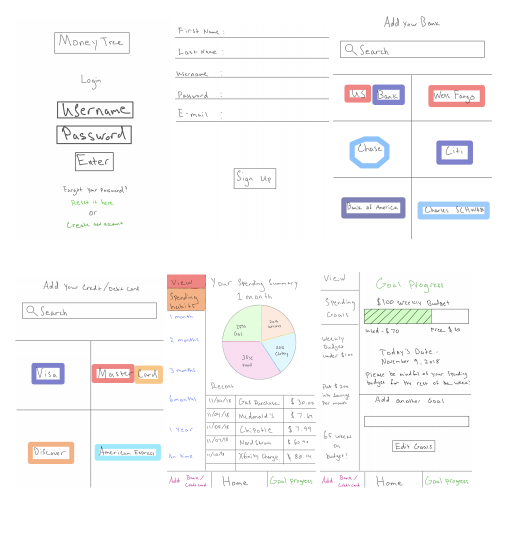 Money Tree
Login
Username
Password
Enter
Forgot your Password?
Reset it here
or
Create an account
First Name :
Last Name :
Username :
Password :
E-mail :
Sign Up
Add your Bank
Search
US Bank
Wells Fargo
Chase
Citi
Bank of America
Charles SCHwab
Add Your Credit/Debit card
Search
Visa
Master Card
Discover
American Express
View
Spending habits
1 month
2 months
3 months
6 months
1 year
All time
Your Spending Summary
1 month
25% Gas
20%
20% Clothing
35% Food
Recent
Gas Purchase $ 30.00
McDonald's
Chipotle $ 7.99
Nordstrom
Xfinity Charge
Add Bank/Credit card
Home
Goal progress
View
Spending Goals
Weekly Budget under $100
Put $200 into savings per month
weeks on budget!
Goal Progress
$100 Weekly Budget
Used - $70
Free $30
Today's Date -
November 9, 2018
Please be mindful of your spending
budget for the rest of the week!
Add another Goal
Edit Goals
Add Bank/Credit card
Home
Goal progress